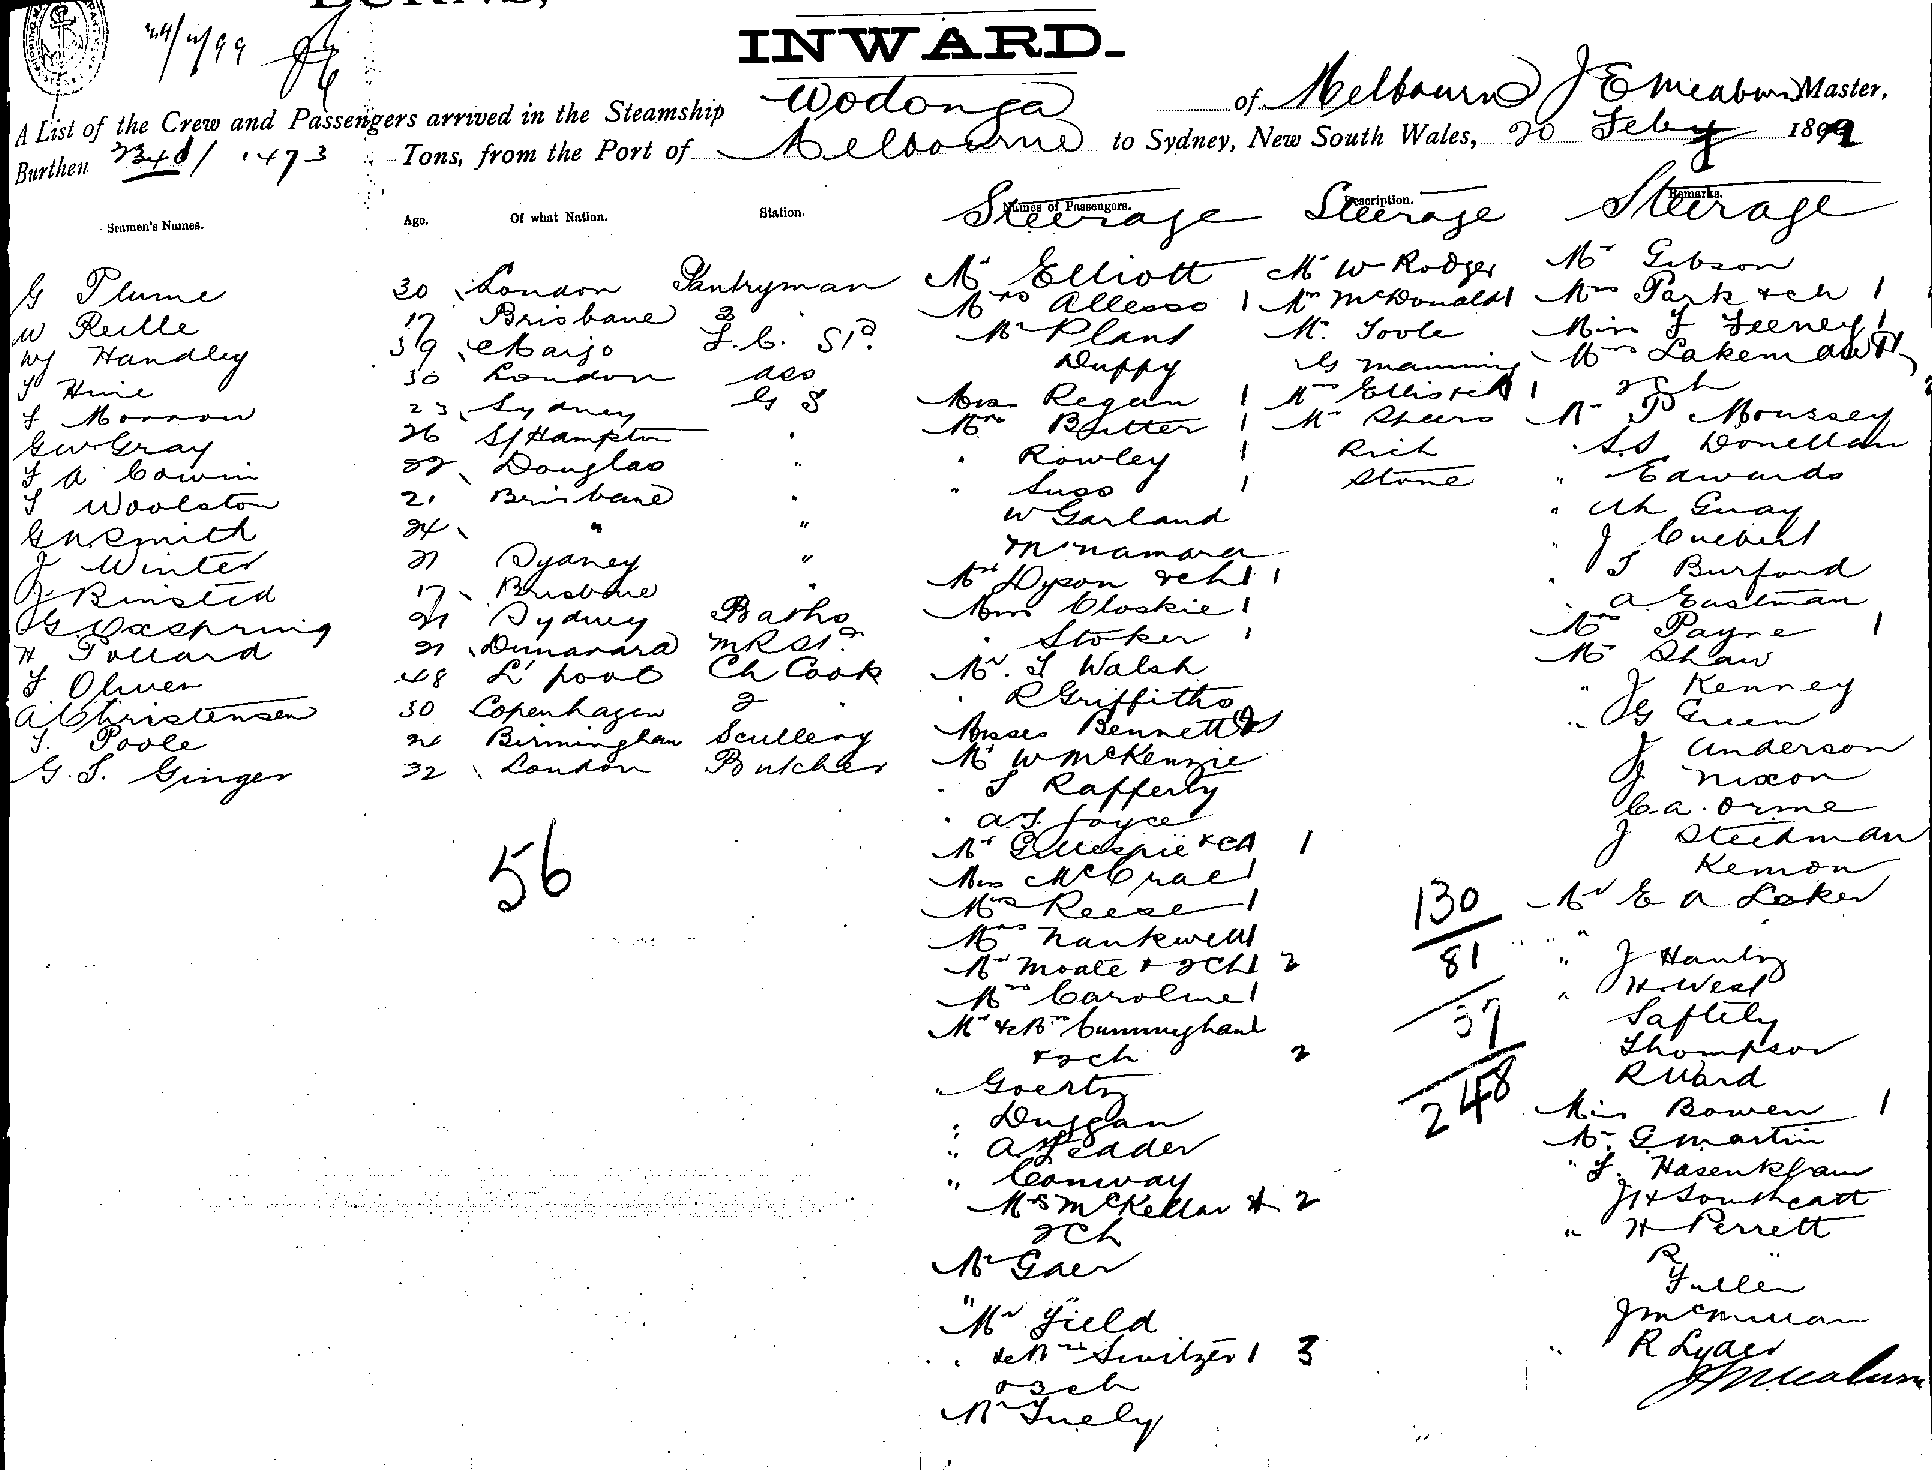 INWARD.
A List of the Crew and Passengers arrived in the Steamship Wodonga of Melbourne J E Meaburn Master,
Burthen 2341/1473 Tons, from the Port of Melbourne to Sydney, New South Wales, 20 Feby 1899
Seamen's Names. Age. Of what Nation. Station. Names of Passengers. Description. Remarks.
Steerage Steerage Steerage
G Plume 30 London Pantryman
W Reille 17 Brisbane 2
WJ Handley 39 L.C. Std.
T Hine 30 London ass
T Morrow 23 Sydney G S
GW Gray 26 S/Hampton
T A Cowin 22 Douglas "
T Woolston 21 Brisbane "
G N Smith 24 " "
J Winter 21 Sydney "
J Binsted 17 Brisbane "
G Oxspring 21 Sydney Baths
H Pollard 21 MR St.
T Oliver 48 L'pool Ch Cook
A Christensen 30 Copenhagen 2 "
T. Poole 21 Birmingham Scullery
G. S. Ginger 32 London Butcher
56
Mr Elliott
Mrs Allesso 1
Mr Plant
Duffy
Miss Regan 1
Mrs Butter 1
" Rowley 1
" Suss 1
W Garland
McNamara
Mrs Dyson & ch 1 1
Miss Closkie 1
" Stoker 1
Mr. T Walsh
" R Griffiths
Misses Bennett 2
Mr W McKenzie
" T Rafferty
" A J Joyce
Mrs Gillespie & ch 1
Miss McCrae 1
Mrs Reese 1
Mrs Nankwell
Mrs Moate & 2 ch 1 2
Mrs Caroline 1
Mr & Mrs Cunningham 1
& 2 ch 2
" Goertz
" Duggan
" A Leader
" Conway
Mrs McKellar & 2
2 Ch
Mr Gaer
"
Mr Field
" & Mrs Switzer 1 3
& 3 ch
Mr Tuely
Mr W Rodger
Mrs McDonald 1
Mr. Toole
G Manning
Mrs Ellis & ch 1 1
Mr Sheers
Rich
Stone
130
81
37
248
Mr Gibson
Mrs Park & ch 1
Miss F Feeney 1
Mrs Lakeman
2 ch
Mr P Moussey
" S S Donellan
" Edwards
" Ah Guay
" J
" T Burford
" A. Eastman
Mrs Payne 1
Mr Shaw
" J Kenney
" G Green
J Anderson
J Nixon
C A. Orme
J Steedman
Kemon
Mr E A Laker
" J Hanby
" H West
Saftely
Thompson
R Ward
Miss Bowen 1
Mr. G Martin
" F.
J H Southcott
" H Perrett
R "
Fuller
J McMillan
" R Lyder
J E Meaburn